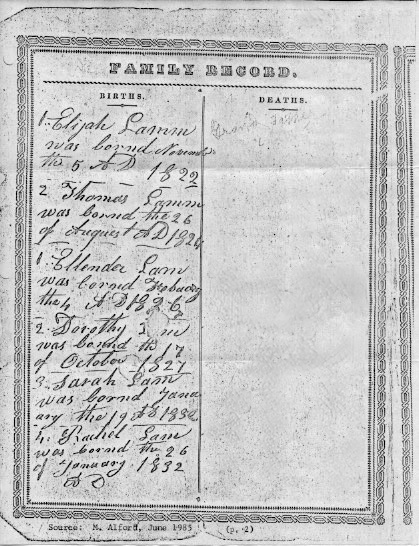 FAMILY RECORD.
BIRTHS.
DEATHS.
1. Elijah Lamm
was bornd November
the 5 AD
1822
2. Thomas Lamm
was bornd the 26
of Auguest AD 1824
1. Ellender Lam
was bornd Febuary
the 4 AD 1826
2. Dorothy
was bornd the 17
of October 1827
3. Sarah Lam
was bornd Janu
ary the 19 AD
4. Rachel Lam
was bornd the 26
of January 1832
AD
Source: M. Alford, June 1985 (p. 2)